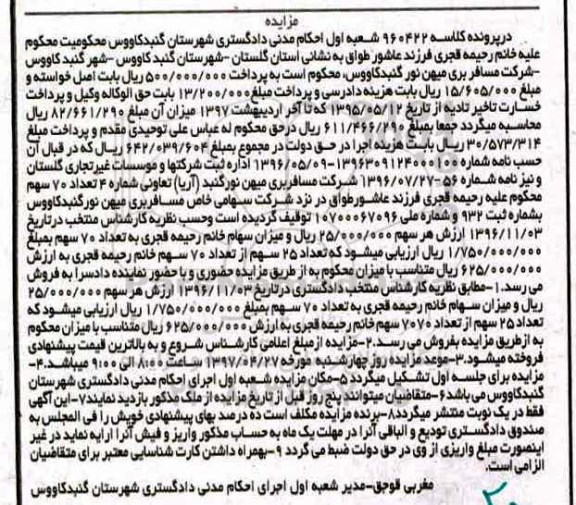 مزایده
درپرونده کلاسه ۹۶۰۴۲۲ شعبه اول احکام مدنی دادگستری شهرستان گنبدکاووس محکومیت محکوم
علیه خانم رحیمه قجری فرزند عاشور طواق به نشانی استان گلستان -شهرستان گنبد کاووس -شهر گنبد کاووس
-شرکت مسافر بری میهن نور گنبدکاووس، محکوم است به پرداخت ۵۰۰/۰۰۰/۰۰۰ ریال بابت اصل خواسته و
مبلغ ۱۵/۶۰۵/۰۰۰ ریال بابت هزینه دادرسی و پرداخت مبلغ ۱۳/۲۰۰/۰۰۰ بابت حق الوکاله وکیل و پرداخت
خسارت تاخیر تادیه از تاریخ ۱۳۹۵/۰۵/۱۲ که تا آخر اردیبهشت ۱۳۹۷ میزان آن مبلغ ۸۲/۶۶۱/۲۹۰ ریال
محاسبه میگردد جمعا بمبلغ ۶۱۱/۴۶۶/۲۹۰ ریال درحق محکوم له عباس علی توحیدی مقدم و پرداخت مبلغ
۳۰/۵۷۳/۳۱۴ ریال بابت هزینه اجرا در حق دولت در مجموع بمبلغ ۶۴۲/۰۳۹/۶۰۴ ریال که در قبال آن
حسب نامه شماره ۱۳۹۶۳۰۹۱۲۴۰۰۰۱۰۱-۱۳۹۶/۰۵/۰۹ اداره ثبت شرکتها و موسسات غیرتجاری گلستان
و نیز نامه شماره ۵۶-۱۳۹۶/۰۷/۲۷ شرکت مسافربری میهن نورگنبد (آریا) تعاونی شماره ۴ تعداد ۷۰ سهم
محکوم علیه رحیمه قجری فرزند عاشورطواق در نزد شرکت سهامی خاص مسافربری میهن نورگنبدکاووس
بشماره ثبت ۹۳۲ و شماره ملی ۱۰۷۰۰۰۶۷۰۹۶ توقیف گردیده است وحسب نظریه کارشناس منتخب درتاریخ
۱۳۹۶/۱۱/۰۳ ارزش هر سهم ۲۵/۰۰۰/۰۰۰ ریال و میزان سهام خانم رحیمه قجری به تعداد ۷۰ سهم بمبلغ
۱/۷۵۰/۰۰۰/۰۰۰ ریال ارزیابی میشود که تعداد ۲۵ سهم از تعداد ۷۰ سهم خانم رحیمه قجری به ارزش
۶۲۵/۰۰۰/۰۰۰ ریال متناسب با میزان محکوم به از طریق مزایده حضوری و با حضور نماینده دادسرا به فروش
می رسد.۱-مطابق نظریه کارشناس منتخب دادگستری درتاریخ ۱۳۹۶/۱۱/۰۳ ارزش هر سهم ۲۵/۰۰۰/۰۰۰
ریال و میزان سهام خانم رحیمه قجری به تعداد ۷۰ سهم بمبلغ ۱/۷۵۰/۰۰۰/۰۰۰ ریال ارزیابی میشود که
تعداد ۲۵ سهم از تعداد ۷۰۷۰ سهم خانم رحیمه قجری به ارزش ۶۲۵/۰۰۰/۰۰۰ ریال متناسب با میزان محکوم
به ازطریق مزایده بفروش می رسد.۲-مزایده از مبلغ اعلامی کارشناس شروع و به بالاترین قیمت پیشنهادی
فروخته میشود.۳-موعد مزایده روز چهارشنبه مورخه ۱۳۹۷/۰۴/۲۷ ساعت ۸:۰۰ الی ۹:۰۰ میباشد.۴-
مزایده برای جلسه اول تشکیل میگردد ۵-مکان مزایده شعبه اول اجرای احکام مدنی دادگستری شهرستان
گنبدکاووس می باشد۶-متقاضیان میتوانند پنج روز قبل از تاریخ مزایده از ملک مذکور بازدید نمایند۷-این آگهی
فقط در یک نوبت منتشر میگردد۸-برنده مزایده مکلف است ده درصد بهای پیشنهادی خویش را فی المجلس به
صندوق دادگستری تودیع و الباقی آنرا در مهلت یک ماه به حساب مذکور واریز و فیش آنرا ارایه نماید در غیر
اینصورت مبلغ واریزی از وی در حق دولت ضبط می گردد ۹-بهمراه داشتن کارت شناسایی معتبر برای متقاضیان
الزامی است.
مغربی قوجق-مدیر شعبه اول اجرای احکام مدنی دادگستری شهرستان گنبدکاووس